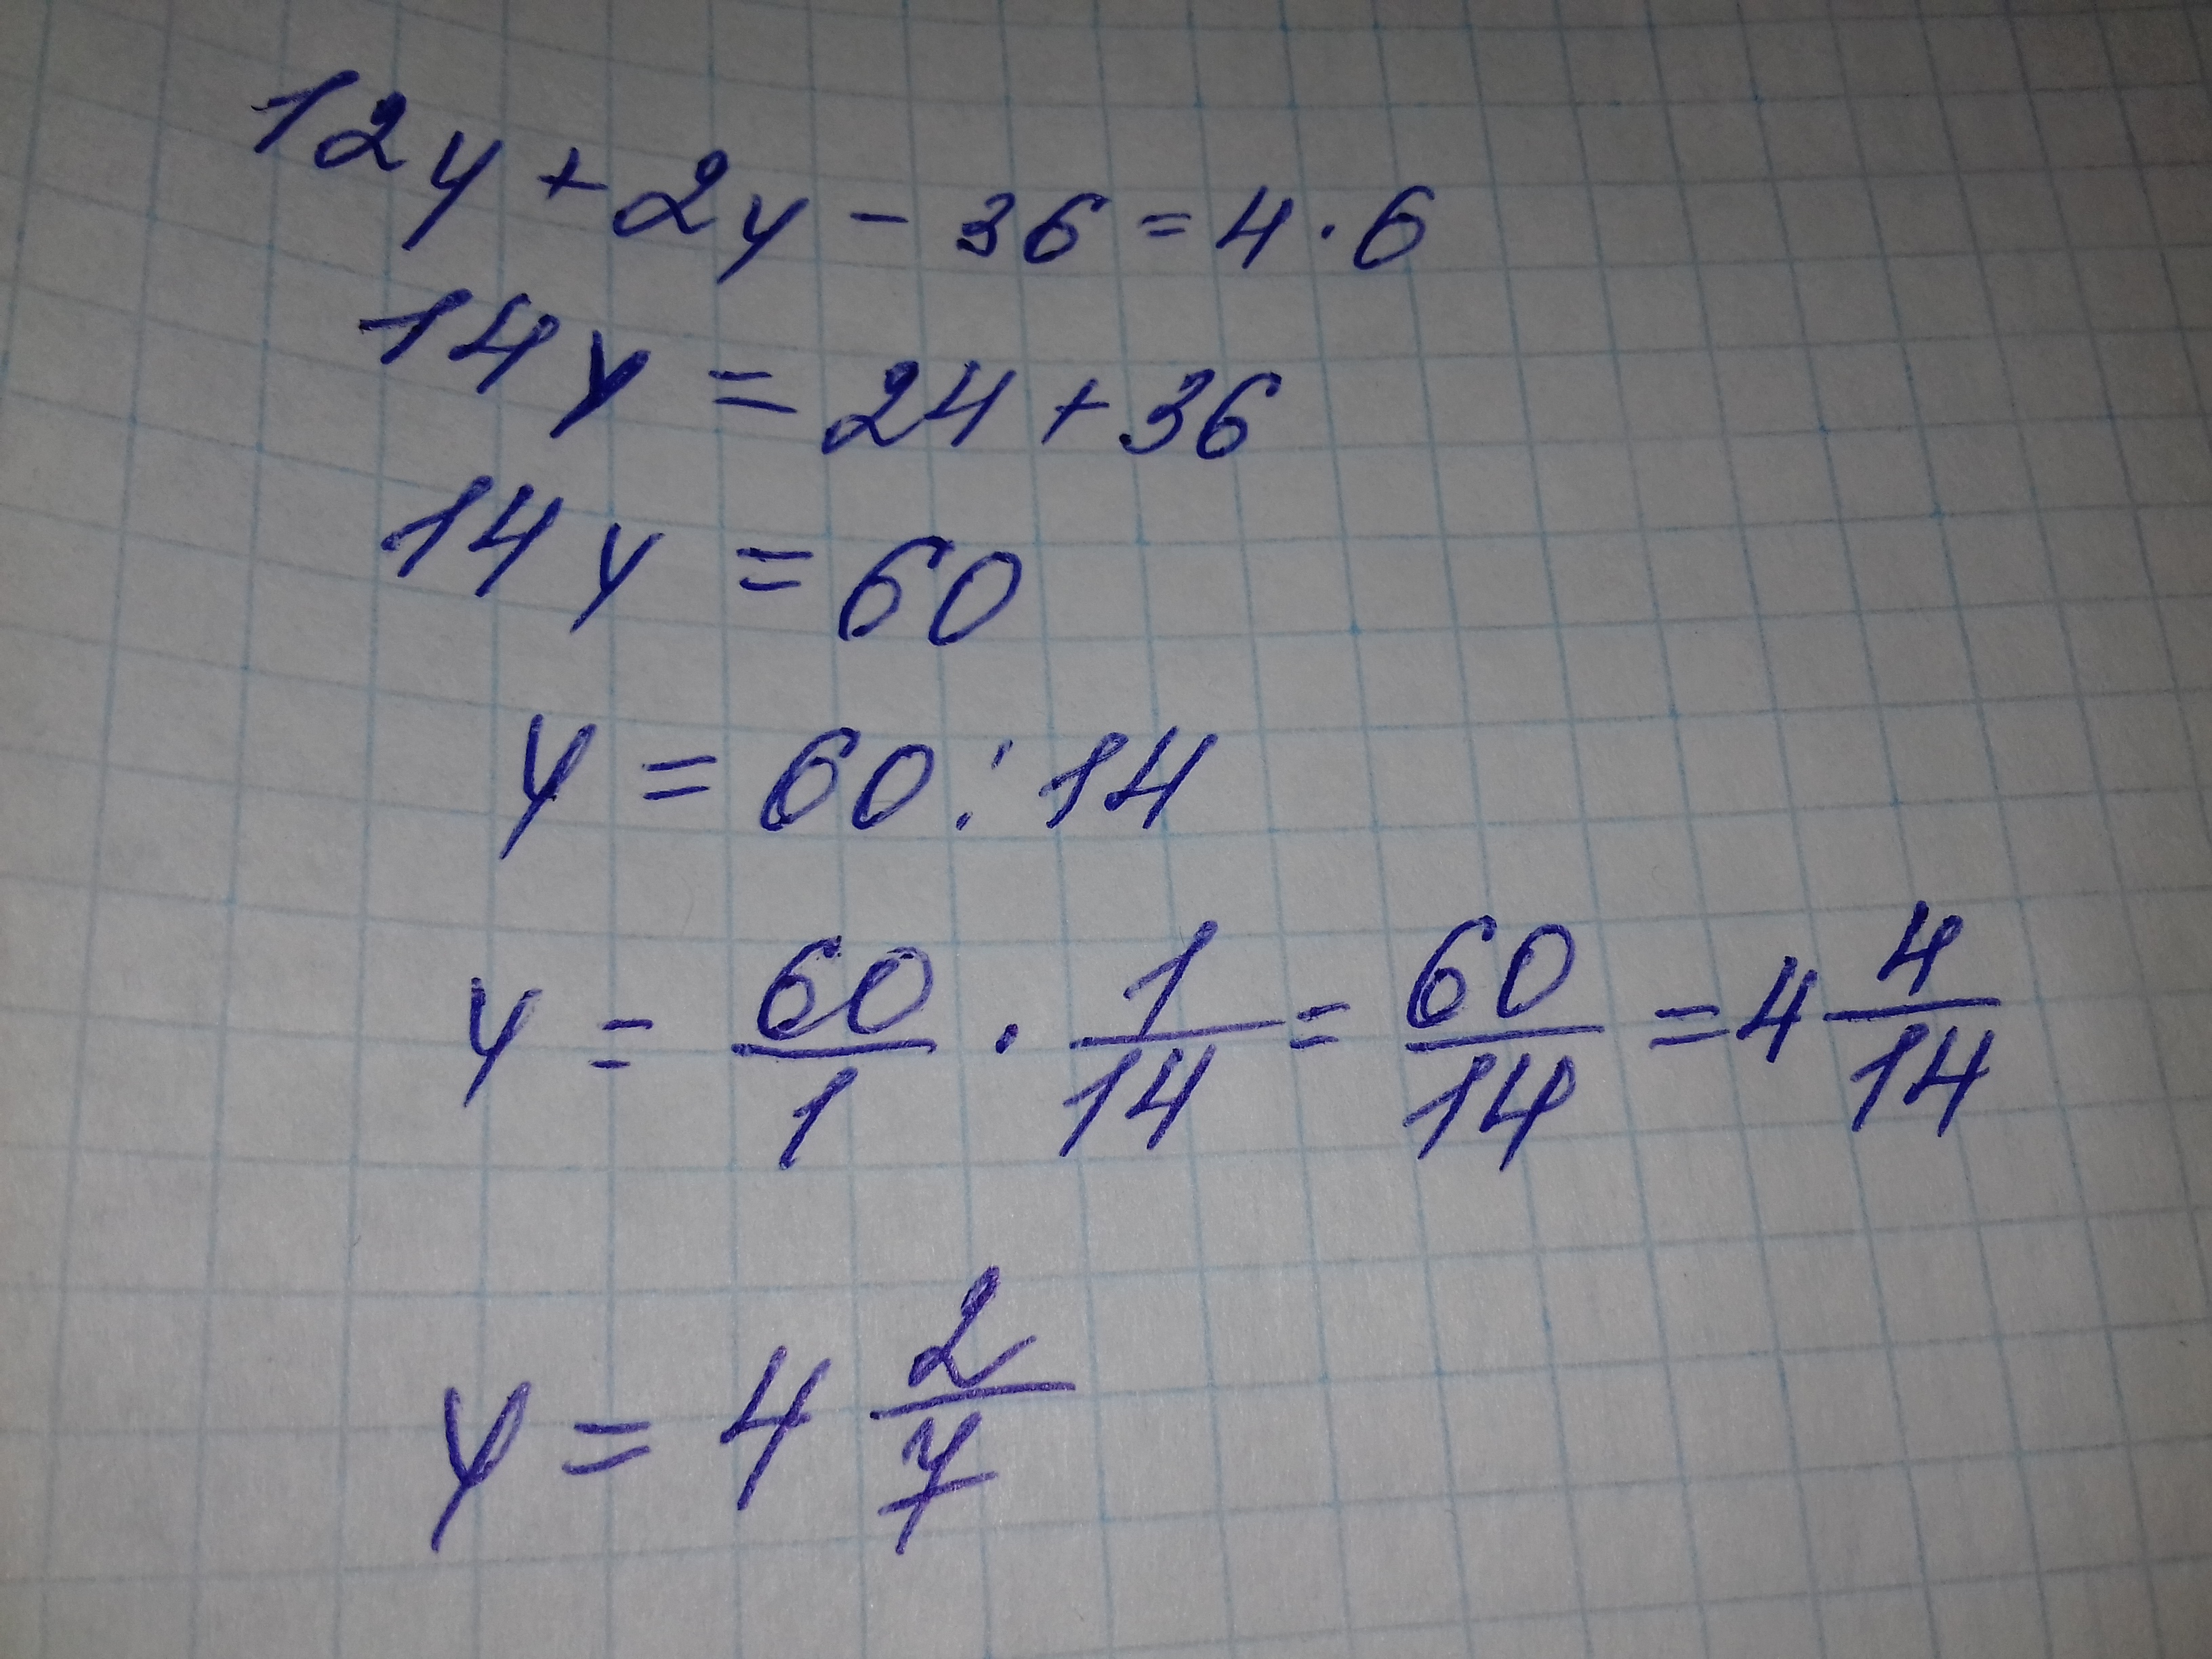 12y + 2y - 36 = 4 · 6
14y = 24 + 36
14y = 60
y = 60 : 14
y = 60/1 · 1/14 = 60/14 = 4 4/14
y = 4 2/7